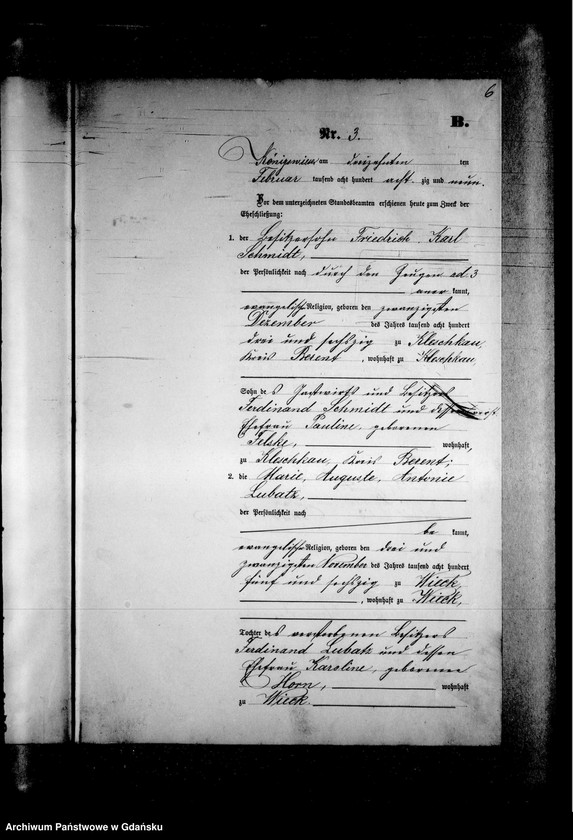 6
B.
Nr. 3.
Königswiese am dreizehnten ten
Februar tausend acht hundert acht zig und neun.
Vor dem unterzeichneten Standesbeamten erschienen heute zum Zweck der
Eheschließung:
1. der Besitzersohn Friedrich Karl
Schmidt,
der Persönlichkeit nach durch den Zeugen ad 3
aner kannt,
evangelischer Religion, geboren den zwanzigsten
Dezember des Jahres tausend acht hundert
drei und sechszig zu Kleschkau,
Kreis Berent, wohnhaft zu Kleschkau
Sohn des Gastwirts und Besitzers
Ferdinand Schmidt und dessen
Ehefrau Pauline geborenen
wohnhaft,
zu Kleschkau, Kreis Berent;
2. die Marie, Auguste, Antonie
Lubatz,
der Persönlichkeit nach
be kannt,
evangelischer Religion, geboren den drei und
zwanzigsten November des Jahres tausend acht hundert
fünf und sechszig zu Wieck
, wohnhaft zu Wieck,
Tochter des verstorbenen Besitzers
Ferdinand Lubatz und dessen
Ehefrau Karoline, geborenen
Horn, wohnhaft
zu Wieck.
Archiwum Państwowe w Gdańsku